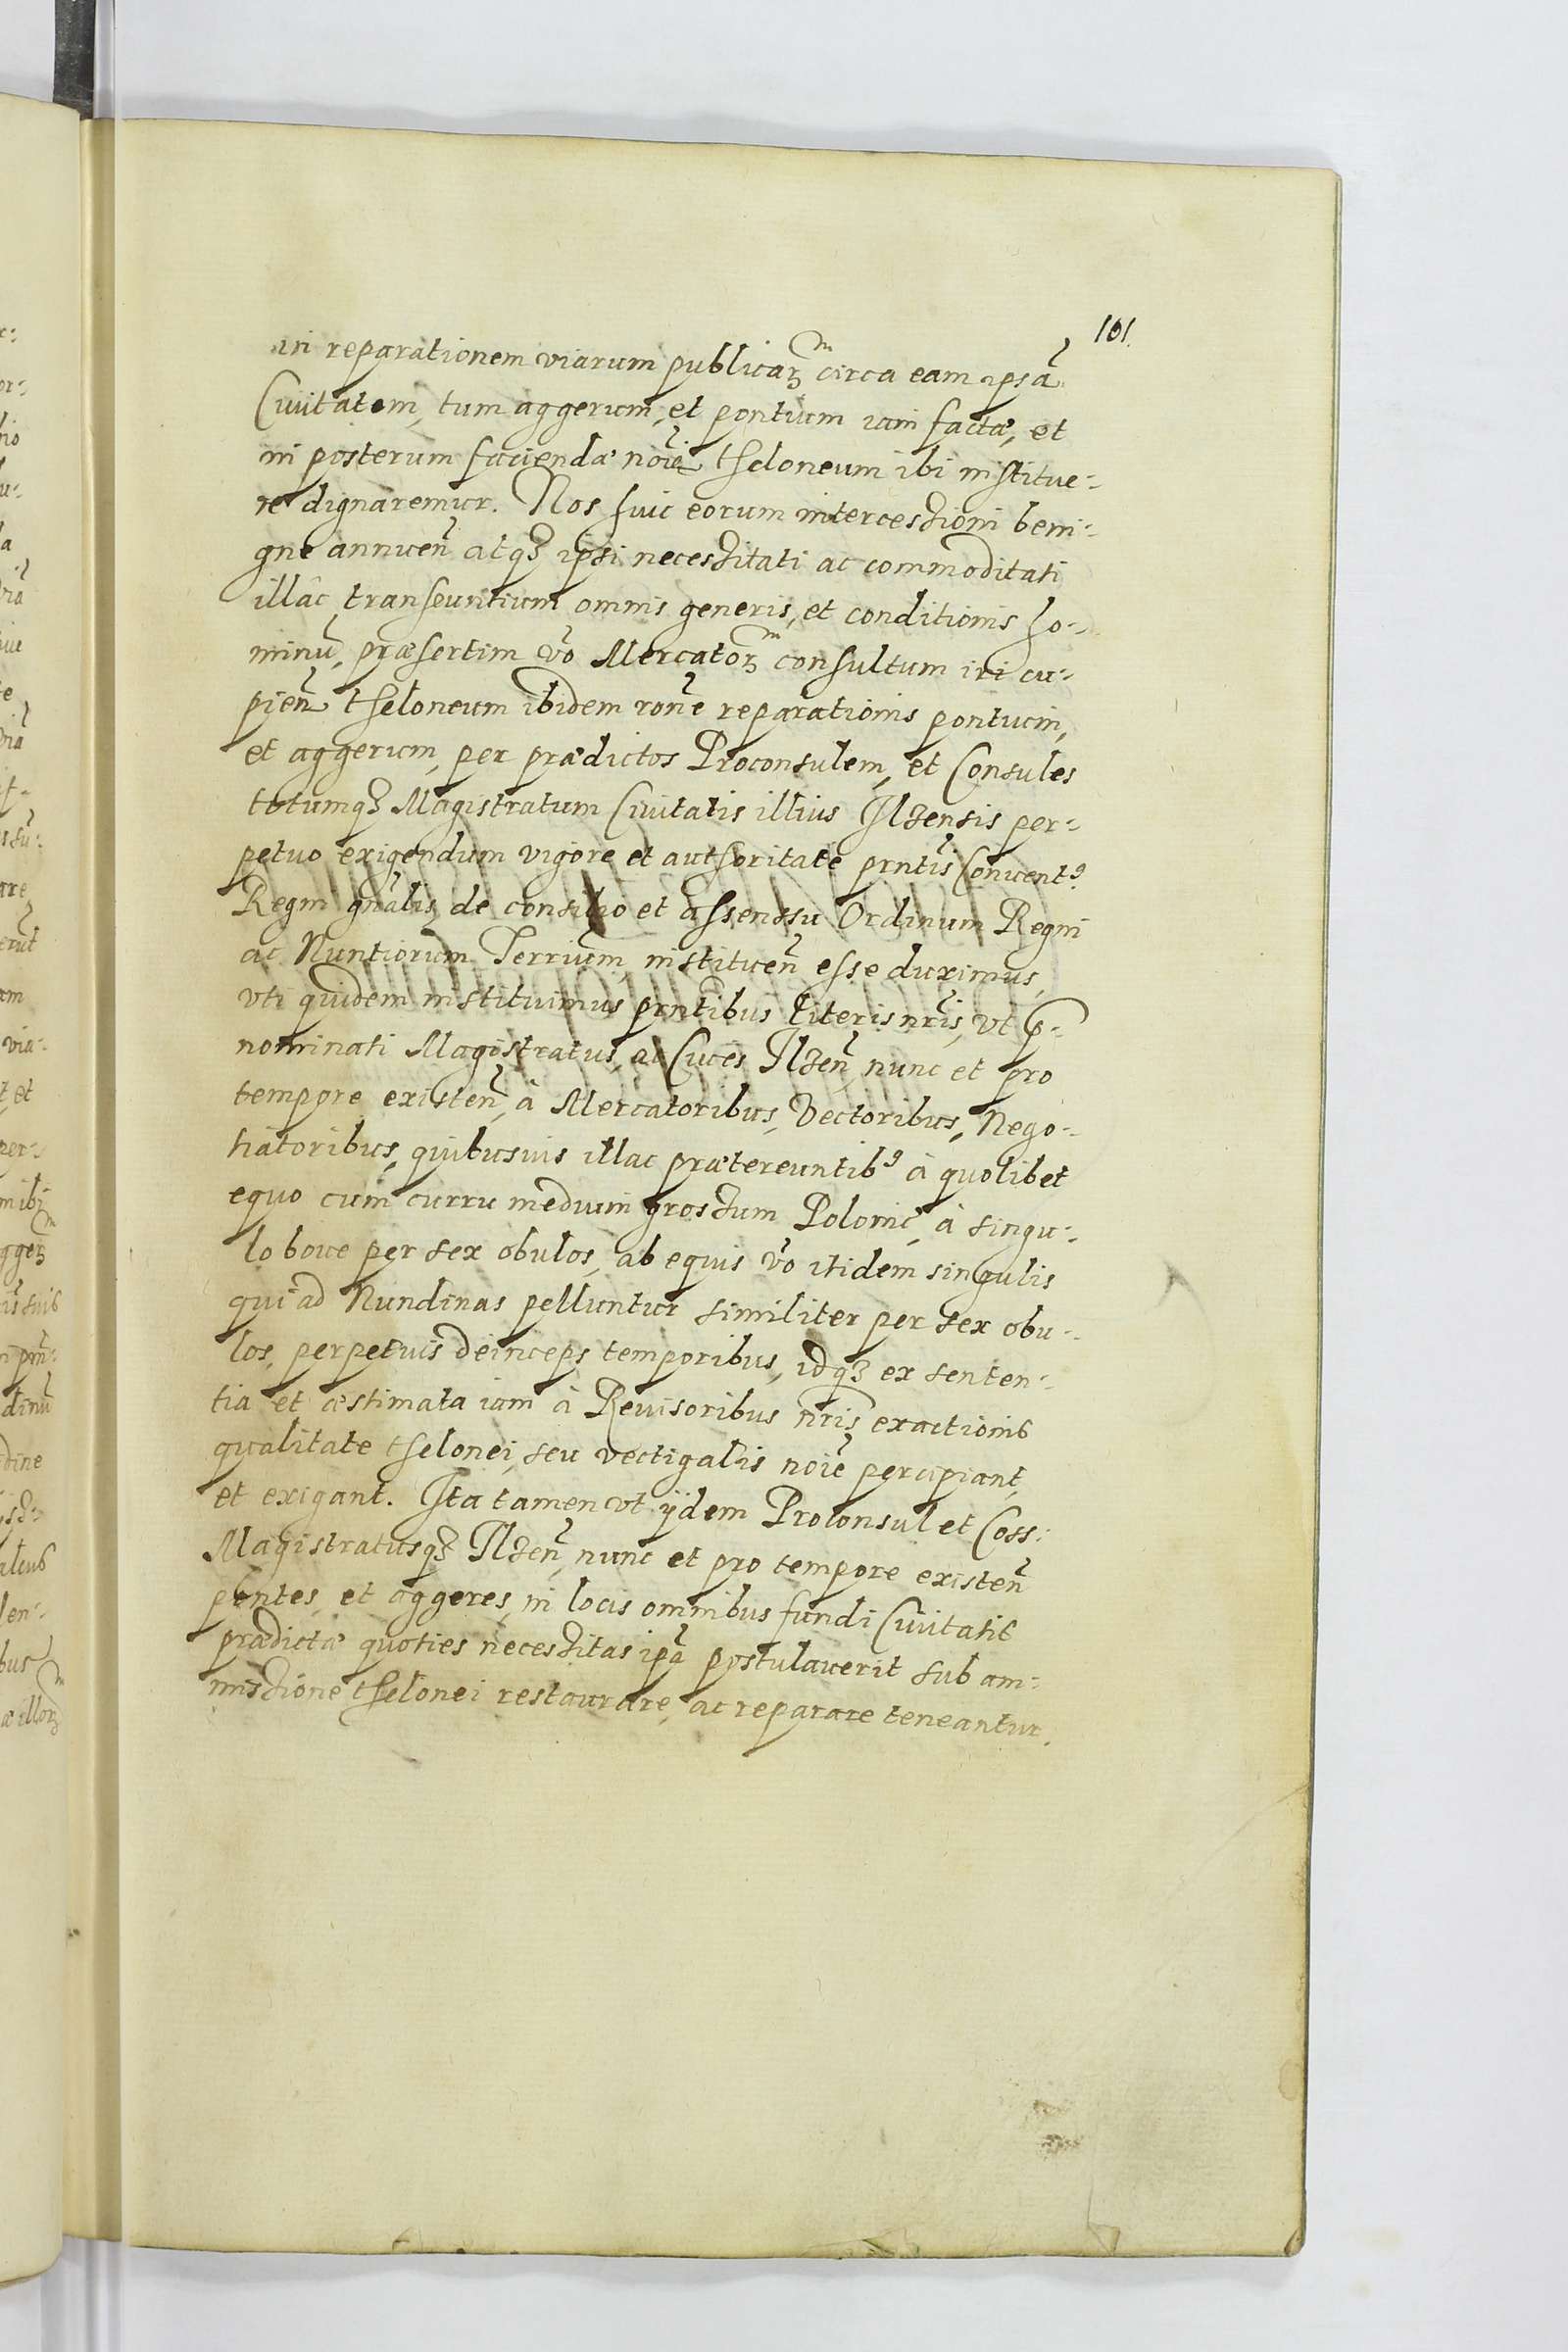 101.
in reparationem viarum publicaꝝ circa eam ipsã
Ciuitatem, tum aggerum, et pontium iam factæ, et
in posterum faciendæ noiẽ theloneum ibi institue-
re dignaremur. Nos huic eorum intercessioni beni-
gne annuen̄ atqȝ ipsi necessitati ac commoditati
illâc transeuntium omnis generis, et conditionis ho-
minũ, præsertim v̄o Mercatoꝝ consultum iri cu-
pien̄ theloneum ibidem ron̄e reparationis pontium,
et aggerum, per prædictos Proconsulem, et Consules
totumqȝ Magistratum Ciuitatis illius Ilzensis per-
petuo exigendum vigore et authoritate prn̄tis Conuentꝰ
Regni gn̄alis de consilio et assenssu Ordinum Regni
ac Nuntiorum Terrium, instituen̄ esse duximus,
vti quidem instituimus prn̄tibus literis nr̄is, vt p̄-
nominati Magistratus, ac Ciues Ilzen̄, nunc et pro
tempore existen̄, à Mercatoribus, Vectoribus, Nego-
tiatoribus, quibusuis illac prætereuntibꝰ à quolibet
equo cum curru medium grossum Polonic̄, à singu-
lo boue per sex obulos, ab equis v̄o itidem singulis
qui ad Nundinas pelluntur similiter per sex obu-
los, perpetuis deinceps temporibus, idqȝ ex senten-
tia et æstimata iam à Reuisoribus nr̄is exactionis
qualitate thelonei, seu vectigalis noiẽ percipiant,
et exigant. Ita tamen vt ijdem Proconsul et Coss:
Magistratusqȝ Ilzen̄, nunc et pro tempore existen̄
pontes, et aggeres, in locis omnibus fundi Ciuitatis
prædictæ quoties necessitas ipã postulauerit sub am-
missione thelonei restaurare, ac reparare teneantur.